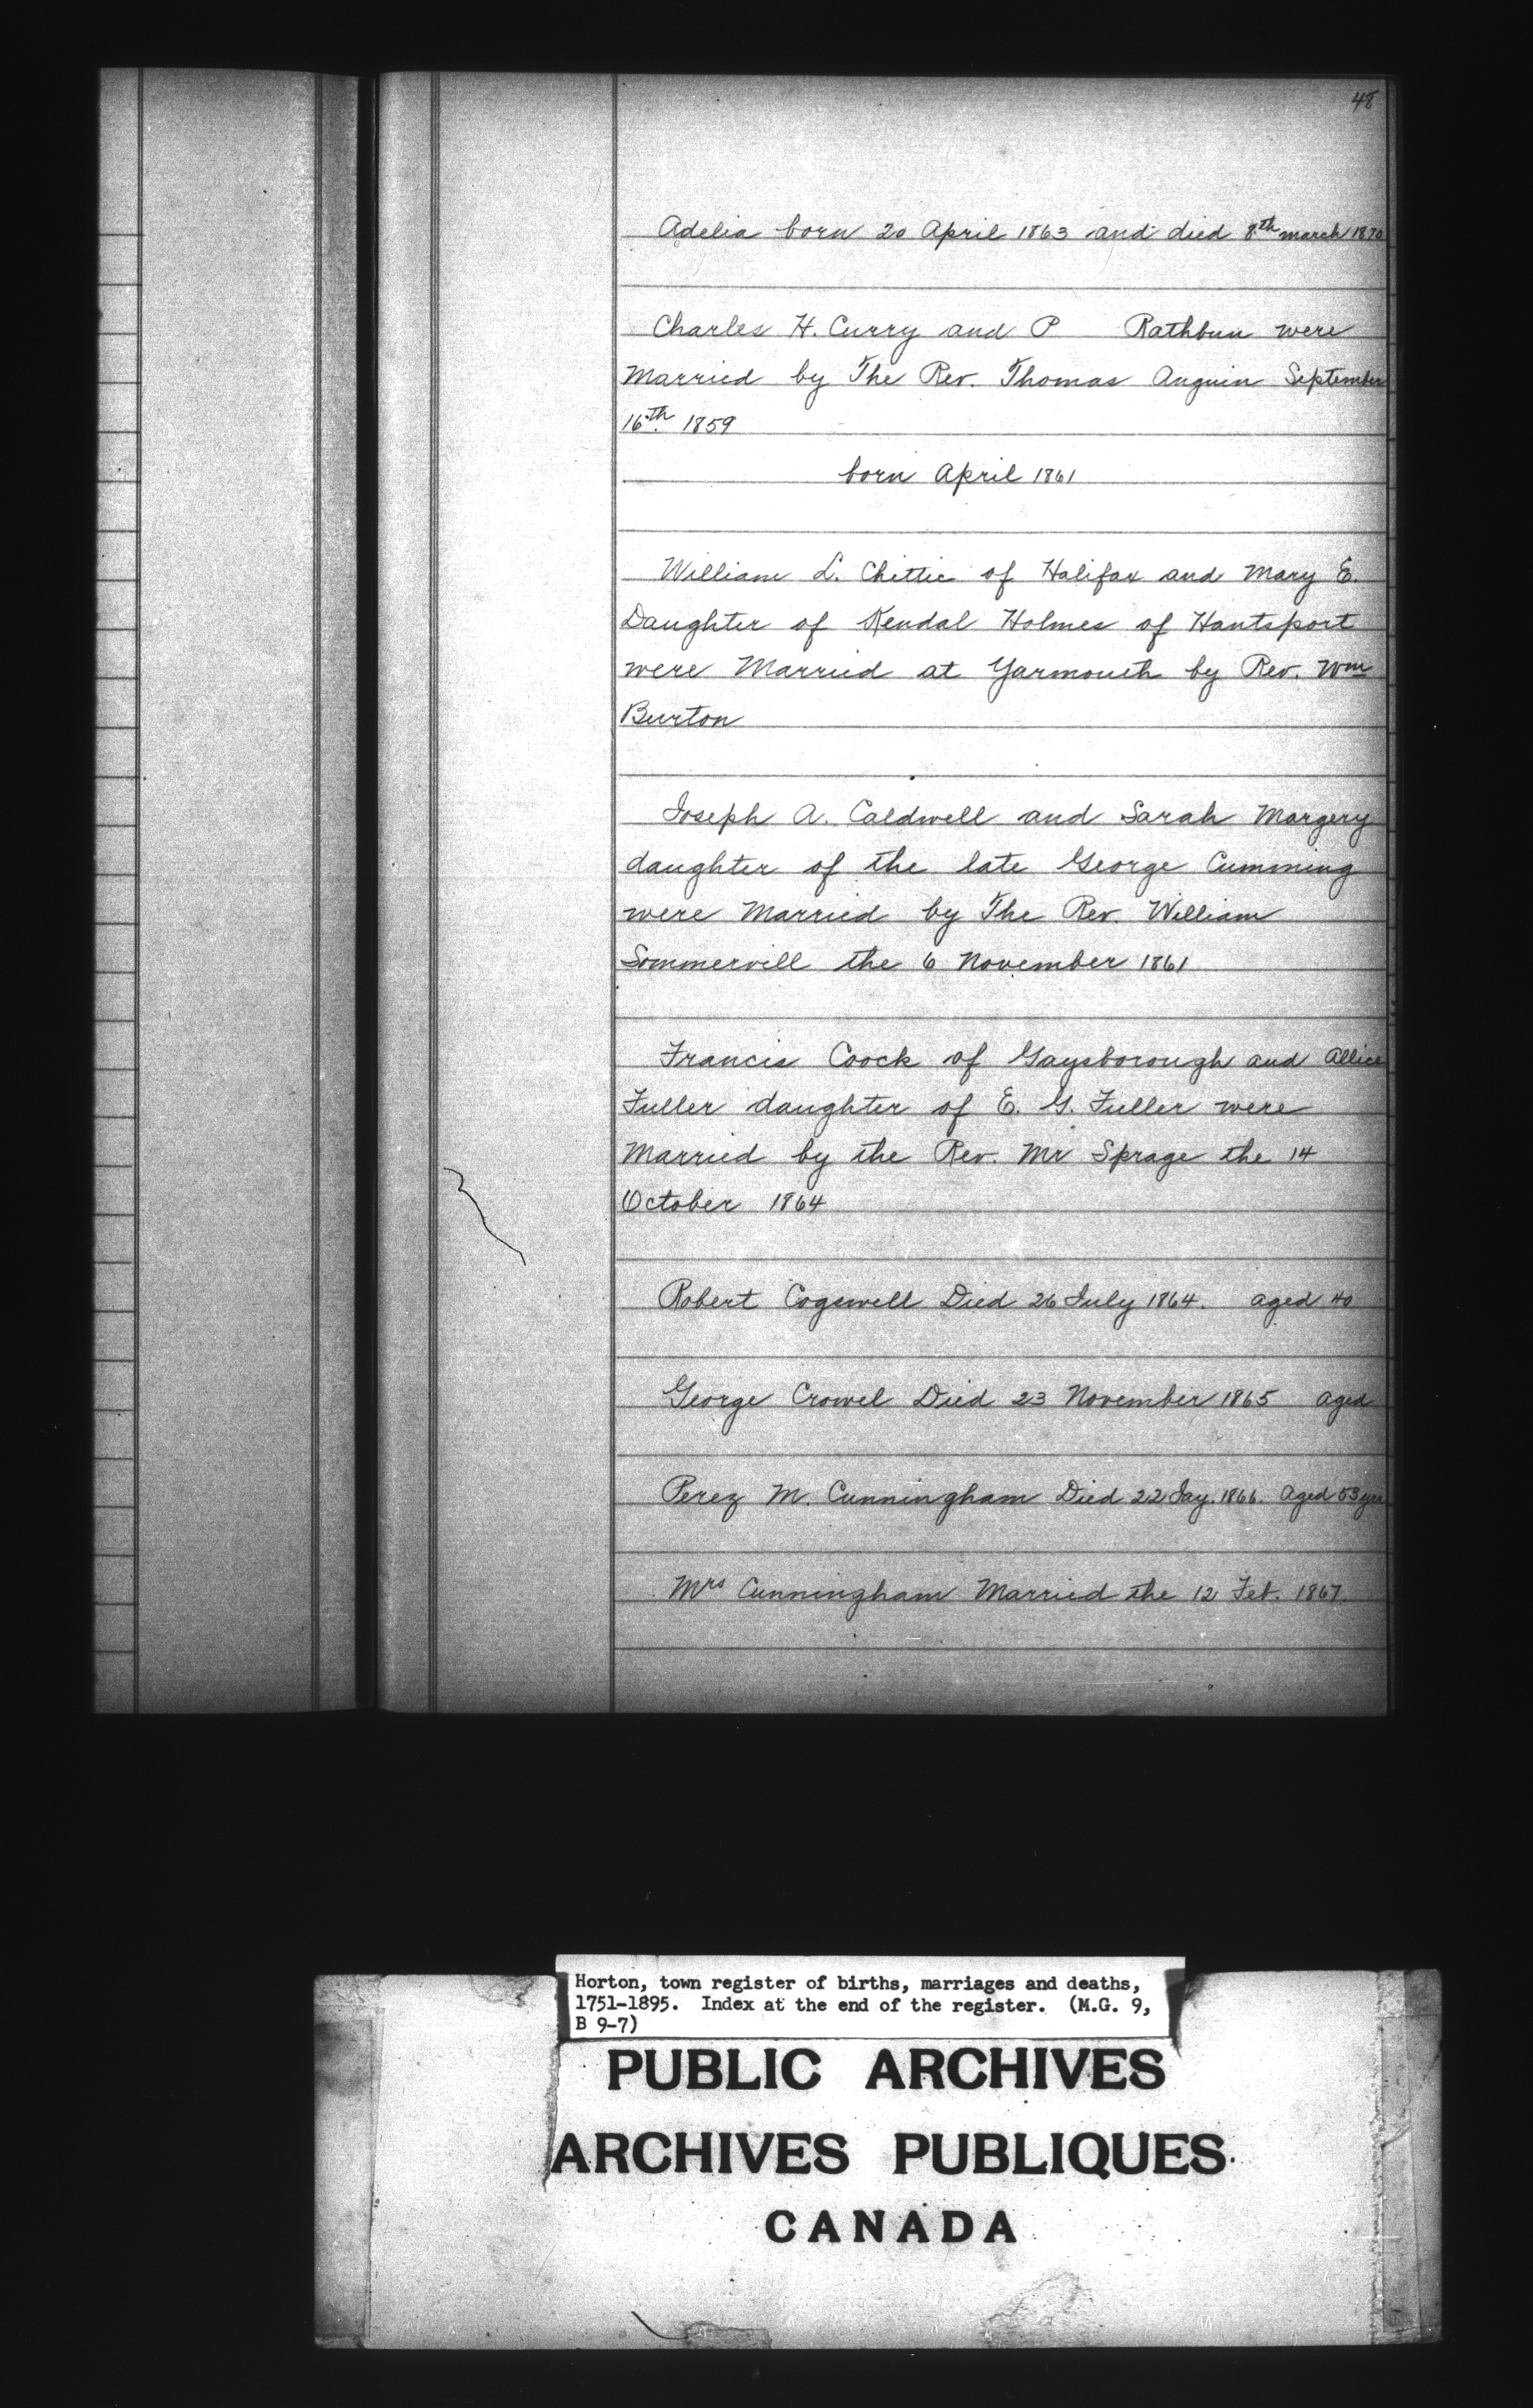 48
Adelia born 20 April 1863 and died 8th march 1870
Charles H. Curry and P Rathbun were
Married by The Rev. Thomas Anguin September
16th 1859
born April 1861
William L. Chittie of Halifax and Mary E.
Daughter of Kendal Holmes of Hantsport
were Married at Yarmouth by Rev. Wm
Burton
Joseph A. Caldwell and Sarah Margery
daughter of the late George Cumming
were Married by The Rev. William
Sommervill the 6 November 1861
Francis Coock of Gaysborough and Allice
Fuller daughter of E. G. Fuller were
Married by the Rev. Mr Sprage the 14
October 1864
Robert Cogswell Died 26 July 1864. aged 40
George Crowel Died 23 November 1865 aged
Perez M. Cunningham Died 22 Jay. 1866. Aged 53 yrs
Mrs Cunningham Married the 12 Feb. 1867.
Horton, town register of births, marriages and deaths,
1751-1895. Index at the end of the register. (M.G. 9,
B 9-7)
PUBLIC ARCHIVES
ARCHIVES PUBLIQUES
CANADA